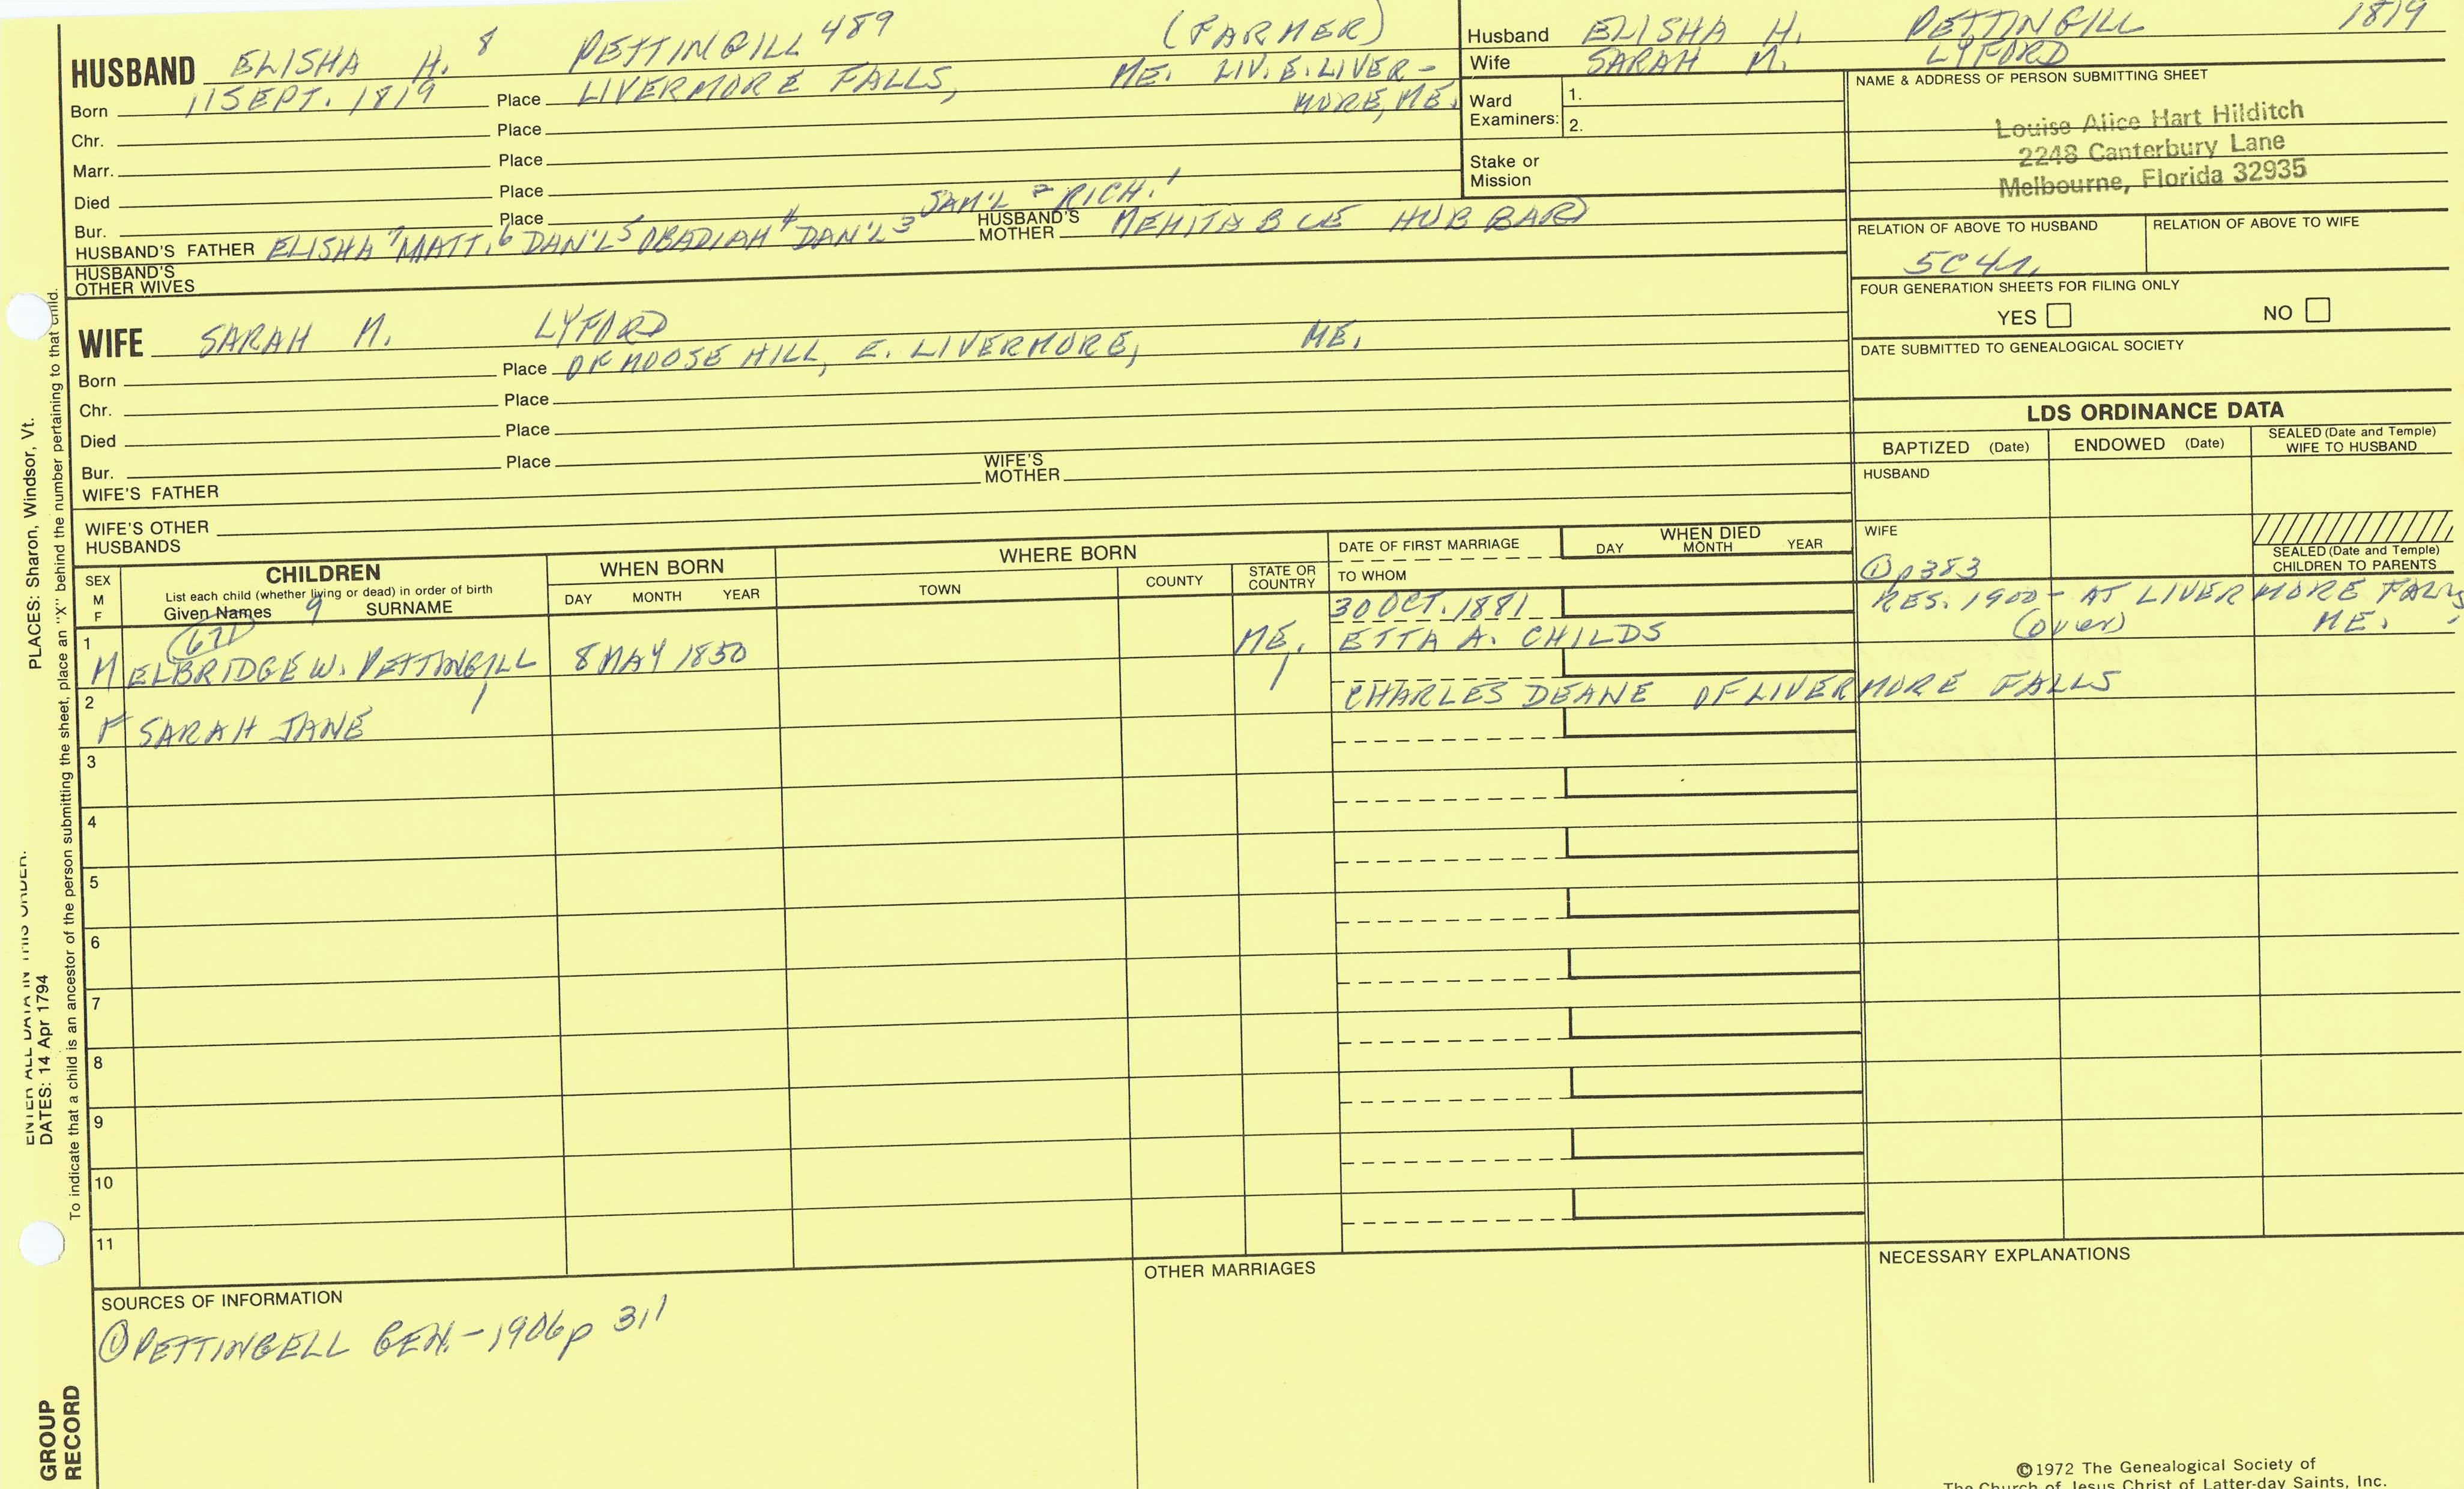 HUSBAND ELISHA H. 8 PETTINGILL 489 (FARMER)
Born 11 SEPT. 1819 Place LIVERMORE FALLS, ME. LIV. E. LIVER-
MORE, ME.
Chr. Place
Marr. Place
Died Place
Bur. Place
SAM'L 2 RICH. 1
HUSBAND'S FATHER ELISHA 7 MATT. 6 DAN'L 5 OBADIAH 4 DAN'L 3 HUSBAND'S MOTHER MEHITABLE HUBBARD
HUSBAND'S
OTHER WIVES
WIFE SARAH M. LYFORD
Born Place OF MOOSE HILL, E. LIVERMORE, ME.
Chr. Place
Died Place
Bur. Place
WIFE'S FATHER WIFE'S MOTHER
WIFE'S OTHER
HUSBANDS
Husband ELISHA H. PETTINGILL 1819
Wife SARAH M. LYFORD
Ward
Examiners: 1.
2.
Stake or
Mission
NAME & ADDRESS OF PERSON SUBMITTING SHEET
Louise Alice Hart Hilditch
2248 Canterbury Lane
Melbourne, Florida 32935
RELATION OF ABOVE TO HUSBAND RELATION OF ABOVE TO WIFE
5C4r.
FOUR GENERATION SHEETS FOR FILING ONLY
YES NO
DATE SUBMITTED TO GENEALOGICAL SOCIETY
LDS ORDINANCE DATA
BAPTIZED (Date) ENDOWED (Date) SEALED (Date and Temple)
WIFE TO HUSBAND
HUSBAND
WIFE
SEALED (Date and Temple)
CHILDREN TO PARENTS
① p383
RES. 1900 - AT LIVERMORE FALLS
(over) ME.
SEX
M
F
CHILDREN
List each child (whether living or dead) in order of birth
Given Names 9 SURNAME
WHEN BORN
DAY MONTH YEAR
WHERE BORN
TOWN COUNTY STATE OR
COUNTRY
DATE OF FIRST MARRIAGE
TO WHOM
WHEN DIED
DAY MONTH YEAR
1 (671) 30 OCT. 1881
M ELBRIDGE W. PETTINGILL 8 MAY 1850 ME. ETTA A. CHILDS
2 CHARLES DEANE OF LIVERMORE FALLS
F SARAH JANE
3
4
5
6
7
8
9
10
11
SOURCES OF INFORMATION
① PETTINGELL GEN. - 1906 p 311
OTHER MARRIAGES
NECESSARY EXPLANATIONS
©1972 The Genealogical Society of
The Church of Jesus Christ of Latter-day Saints, Inc.
ENTER ALL DATA IN THIS ORDER:
DATES: 14 Apr 1794 PLACES: Sharon, Windsor, Vt.
To indicate that a child is an ancestor of the person submitting the sheet, place an "X" behind the number pertaining to that child.
GROUP
RECORD